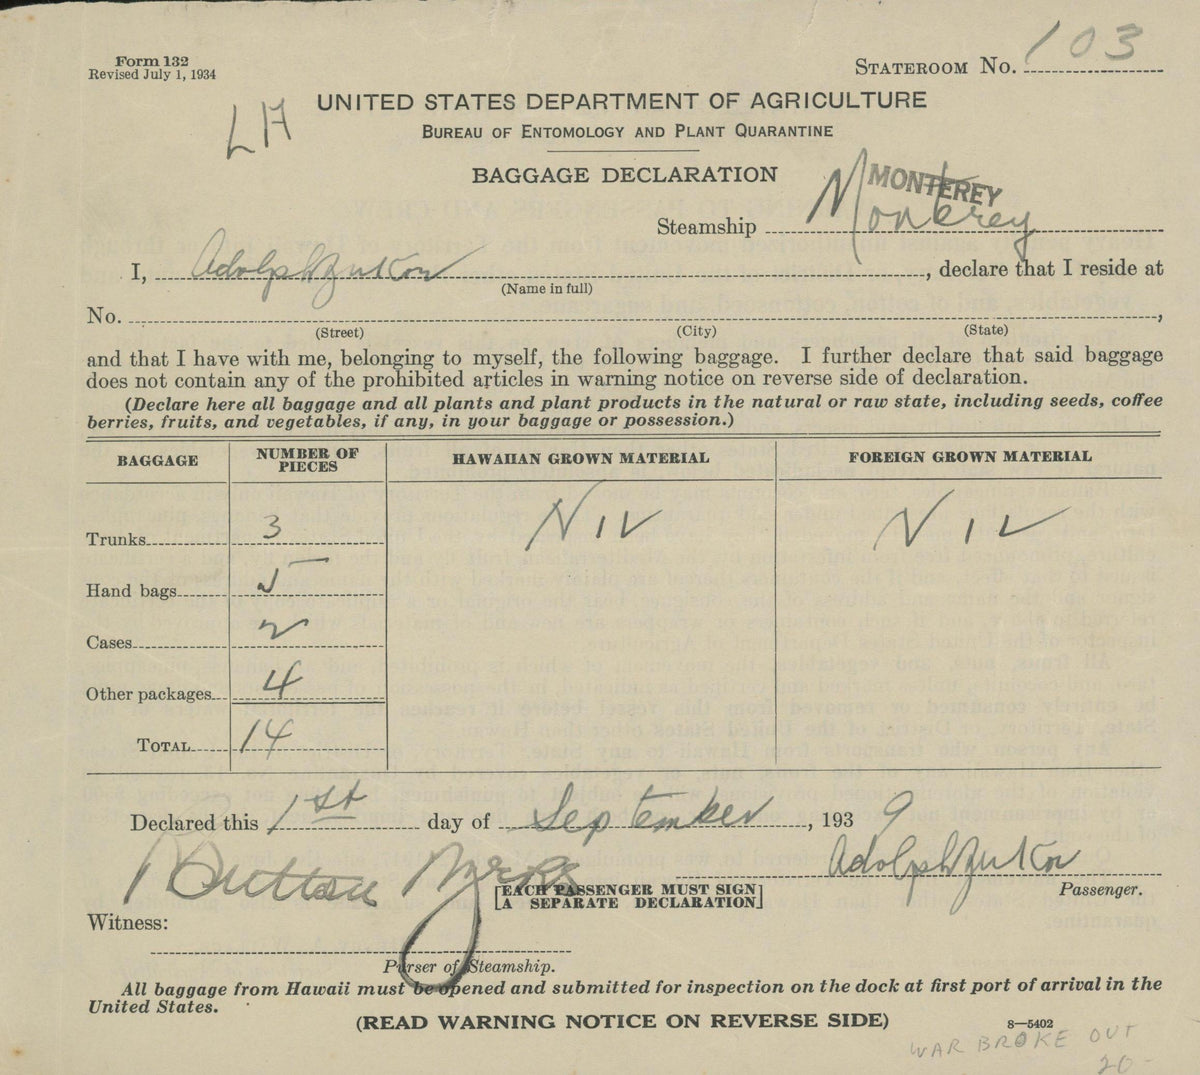 Form 132
Revised July 1, 1934
STATEROOM No. 103
LA
UNITED STATES DEPARTMENT OF AGRICULTURE
BUREAU OF ENTOMOLOGY AND PLANT QUARANTINE
BAGGAGE DECLARATION
MONTEREY
Steamship Monterey
I, Adolph Zukor, declare that I reside at
(Name in full)
No. ,
(Street) (City) (State)
and that I have with me, belonging to myself, the following baggage. I further declare that said baggage
does not contain any of the prohibited articles in warning notice on reverse side of declaration.
(Declare here all baggage and all plants and plant products in the natural or raw state, including seeds, coffee
berries, fruits, and vegetables, if any, in your baggage or possession.)
BAGGAGE NUMBER OF PIECES HAWAIIAN GROWN MATERIAL FOREIGN GROWN MATERIAL
Trunks 3 NIL NIL
Hand bags 5
Cases 2
Other packages 4
TOTAL 14
Declared this 1st day of September, 1939
Adolph Zukor
Button
[EACH PASSENGER MUST SIGN
A SEPARATE DECLARATION] Passenger.
Witness:
Purser of Steamship.
All baggage from Hawaii must be opened and submitted for inspection on the dock at first port of arrival in the
United States.
(READ WARNING NOTICE ON REVERSE SIDE) 8—5402
WAR BROKE OUT
20-